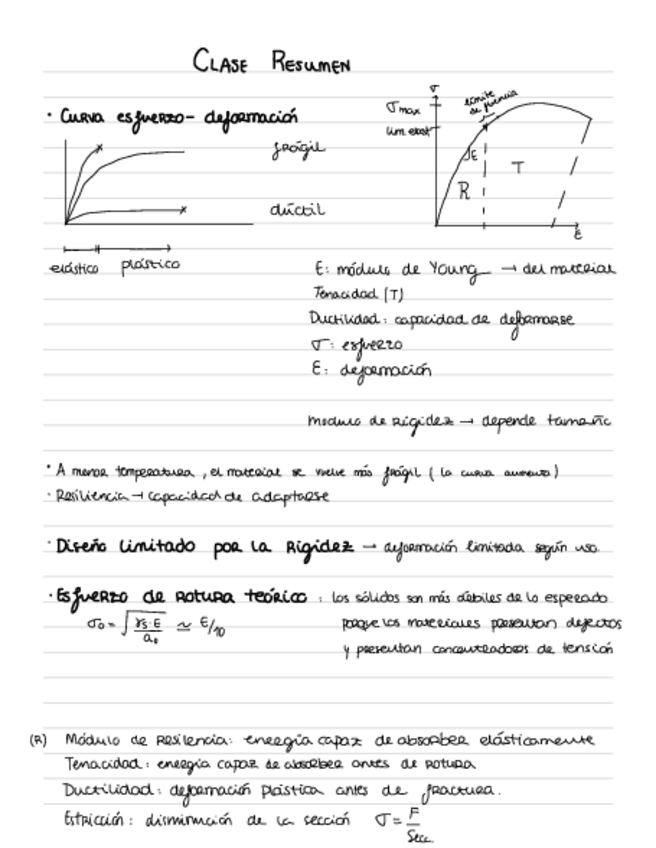 CLASE RESUMEN
· CURVA esfuerzo - deformación
frágil
dúctil
elástico plástico
σ
σmax
lim. elast
límite
de fluencia
E
R
T
ε
E: módulo de Young → del material
Tenacidad (T)
Ductilidad: capacidad de deformarse
σ: esfuerzo
ε: deformación
modulo de rigidez → depende tamaño
· A menor temperatura, el material se vuelve más frágil (la curva aumenta)
· Resiliencia → capacidad de adaptarse
· Diseño limitado por la Rigidez → deformación limitada según uso
· Esfuerzo de rotura teórico: los sólidos son más débiles de lo esperado
σ₀ = √(γs·E/a₀) ≃ E/10 porque los materiales presentan defectos
y presentan concentradores de tensión
(R) Módulo de Resilencia: energía capaz de absorber elásticamente
Tenacidad: energía capaz de absorber antes de rotura
Ductilidad: deformación plástica antes de fractura.
Estricción: disminución de la sección σ = F/Secc.